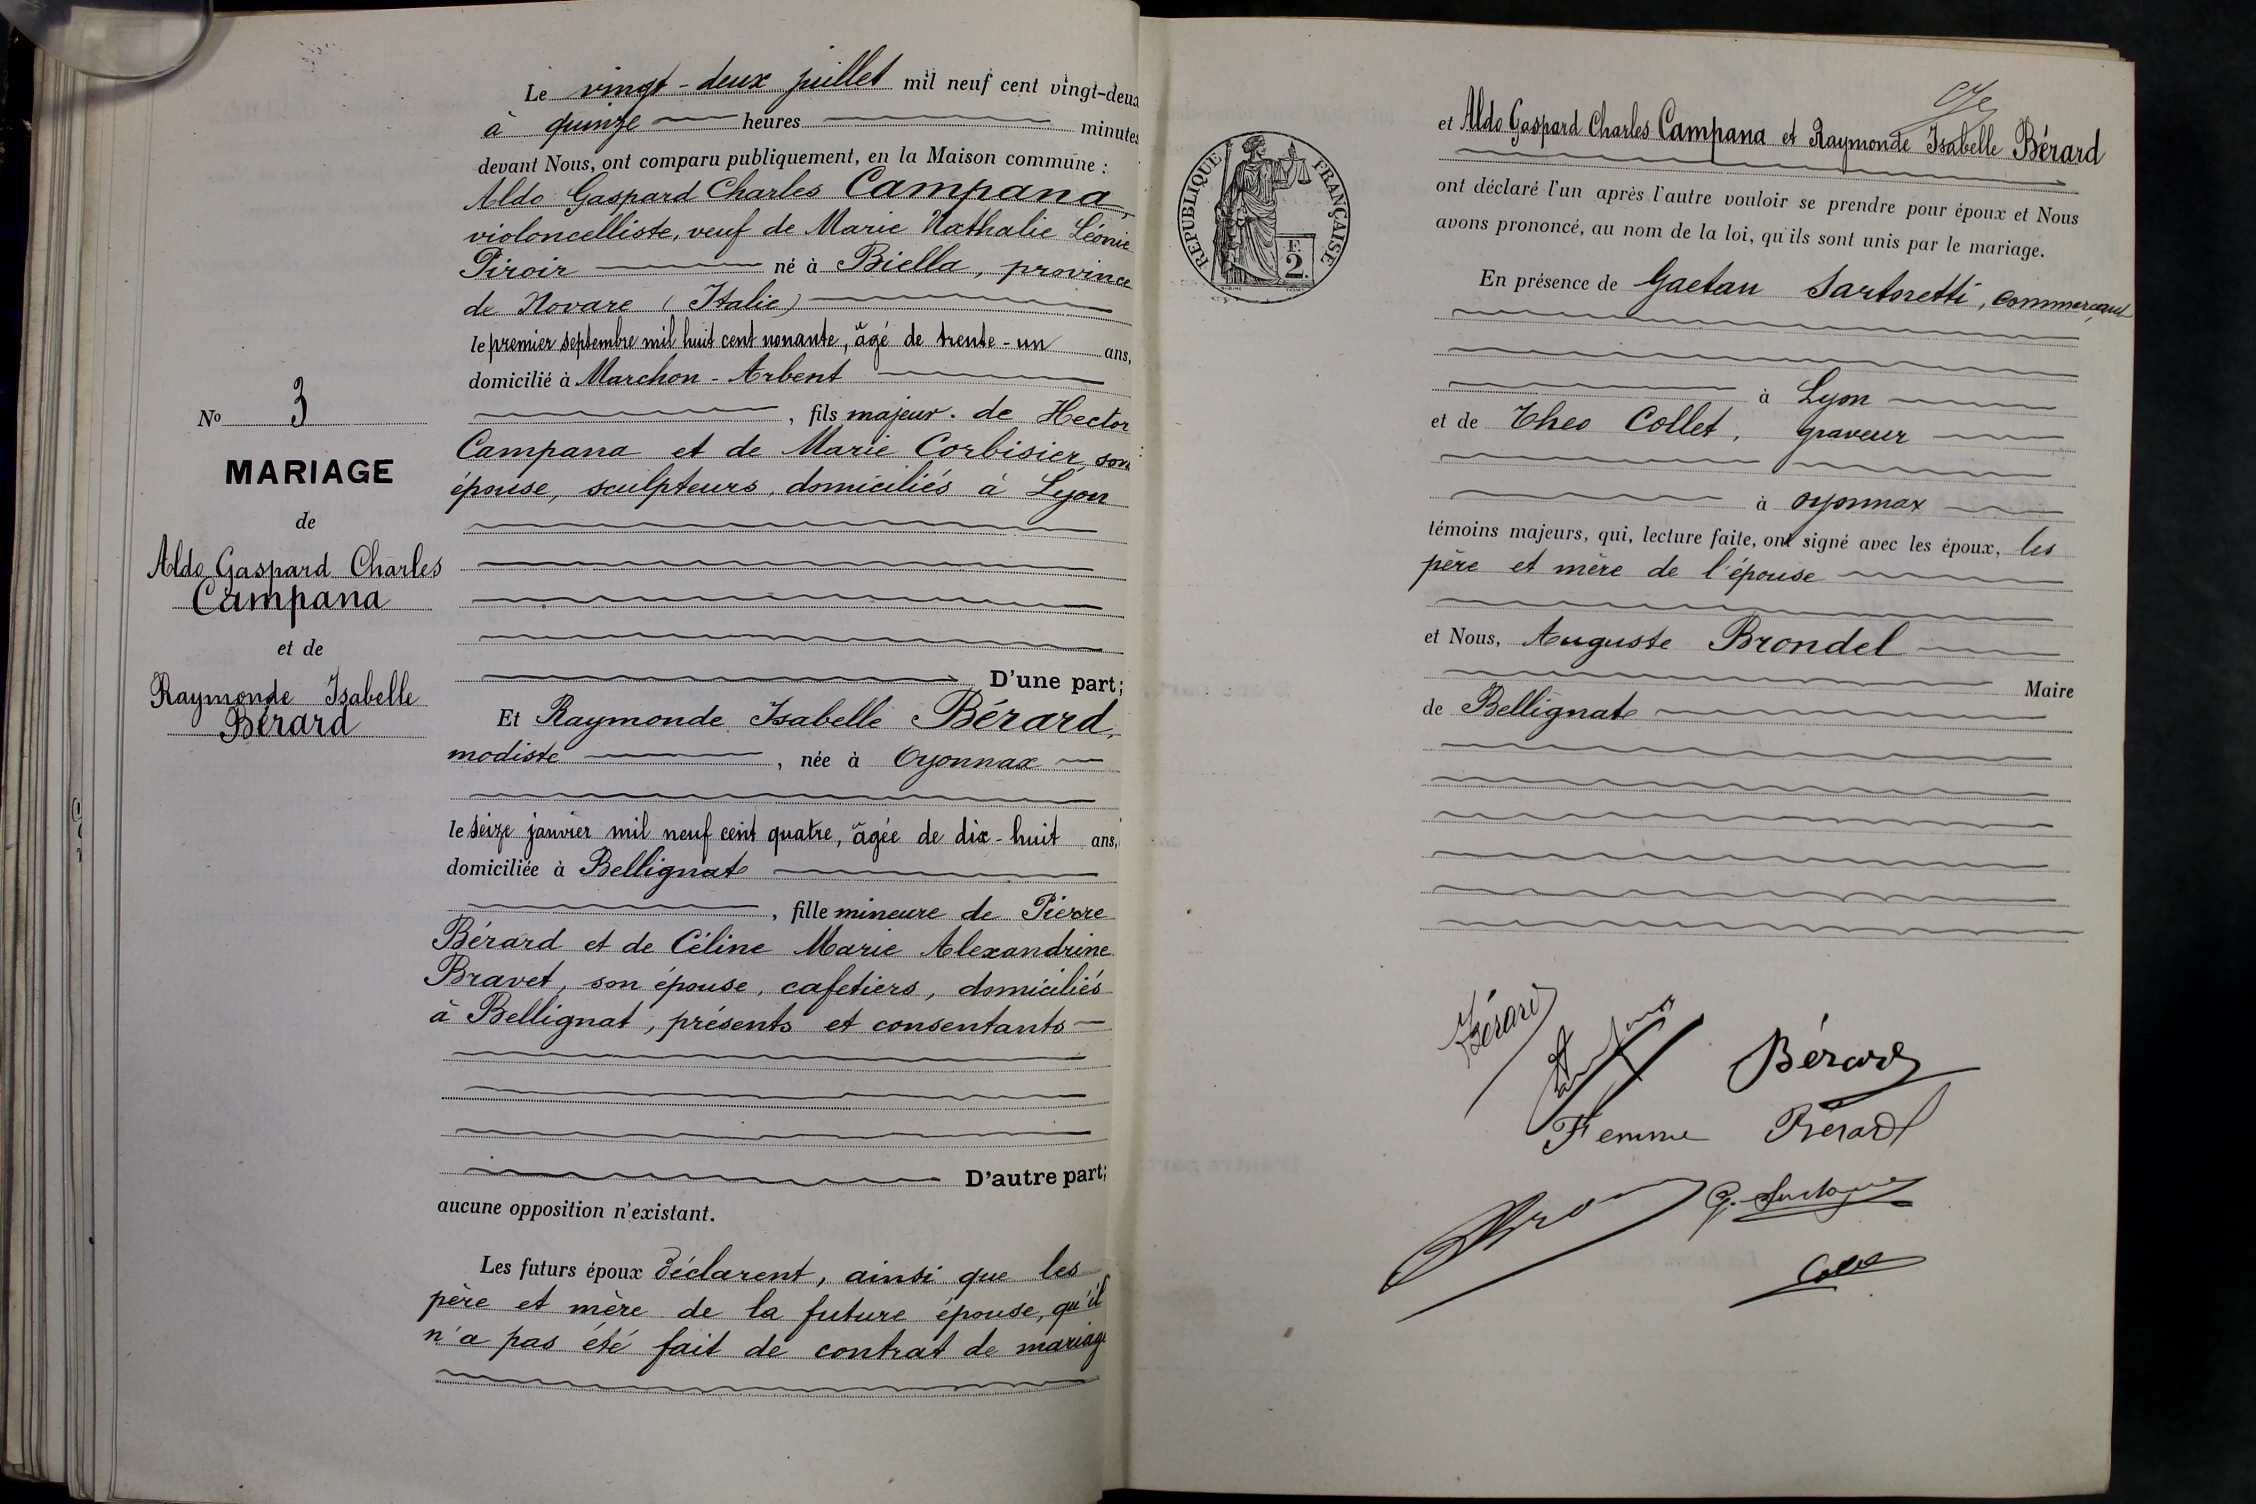 Le vingt-deux juillet mil neuf cent vingt-deux
à quinze heures minutes
devant Nous, ont comparu publiquement, en la Maison commune :
Aldo Gaspard Charles Campana,
violoncelliste, veuf de Marie Nathalie Léonie
Piroir né à Biella, province
de Novare (Italie)
le premier septembre mil huit cent nonante, âgé de trente-un ans,
domicilié à Marchon-Arbent
, fils majeur de Hector
Campana et de Marie Corbisier, son
épouse, sculpteurs, domiciliés à Lyon
No 3
MARIAGE
de
Aldo Gaspard Charles
Campana
et de
Raymonde Isabelle
Bérard
D'une part;
Et Raymonde Isabelle Bérard,
modiste , née à Oyonnax
le seize janvier mil neuf cent quatre, âgée de dix-huit ans,
domiciliée à Bellignat
, fille mineure de Pierre
Bérard et de Céline Marie Alexandrine
Bravet, son épouse, cafetiers, domiciliés
à Bellignat, présents et consentants
D'autre part;
aucune opposition n'existant.
Les futurs époux déclarent, ainsi que les
père et mère de la future épouse, qu'il
n'a pas été fait de contrat de mariage
REPUBLIQUE FRANÇAISE
F.
2
et Aldo Gaspard Charles Campana et Raymonde Isabelle Bérard
ont déclaré l'un après l'autre vouloir se prendre pour époux et Nous
avons prononcé, au nom de la loi, qu'ils sont unis par le mariage.
En présence de Gaetan Sartoretti, commerçant
à Lyon
et de Theo Collet, graveur
à Oyonnax
témoins majeurs, qui, lecture faite, ont signé avec les époux, les
père et mère de l'épouse
et Nous, Auguste Brondel
Maire
de Bellignat
Bérard
Bérard
Femme Bérard